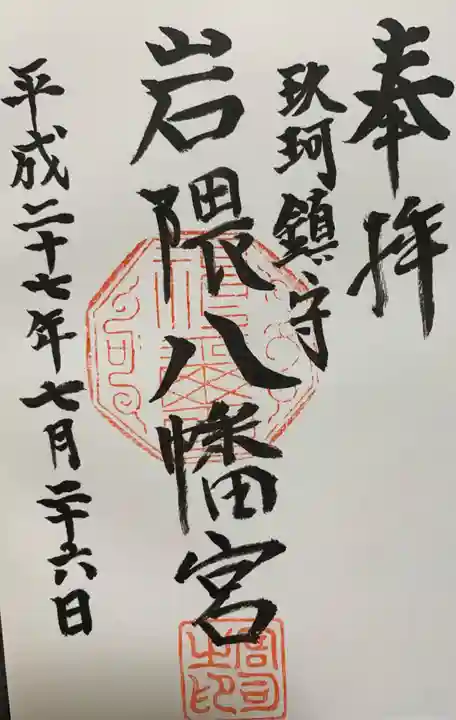 奉拝
玖珂鎮守
岩隈八幡宮
平成二十七年七月二十六日
宮司之印